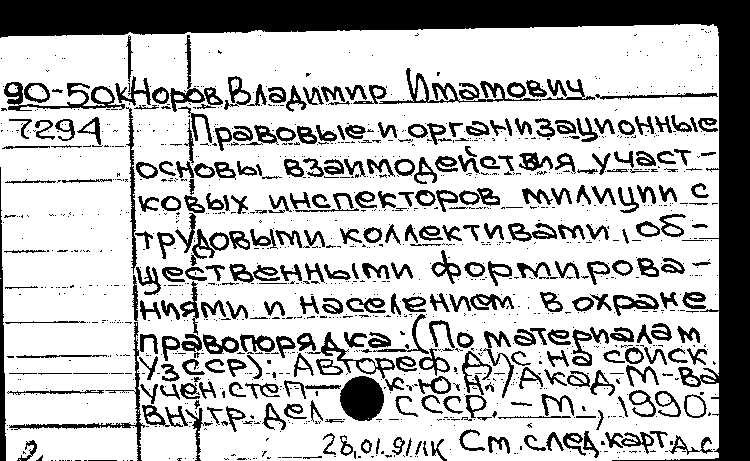 90-50к Норов, Владимир Иматович.
7294 Правовые и организационные
основы взаимодействия участ-
ковых инспекторов милиции с
трудовыми коллективами, об-
щественными формирова-
ниями и населением в охране
правопорядка: (По материалам
УзССР): Автореф. дис. на соиск.
учен. степ. к.ю.н. / Акад. М-ва
внутр. дел СССР. - М., 1990.
28.01.91 См. след. карт.